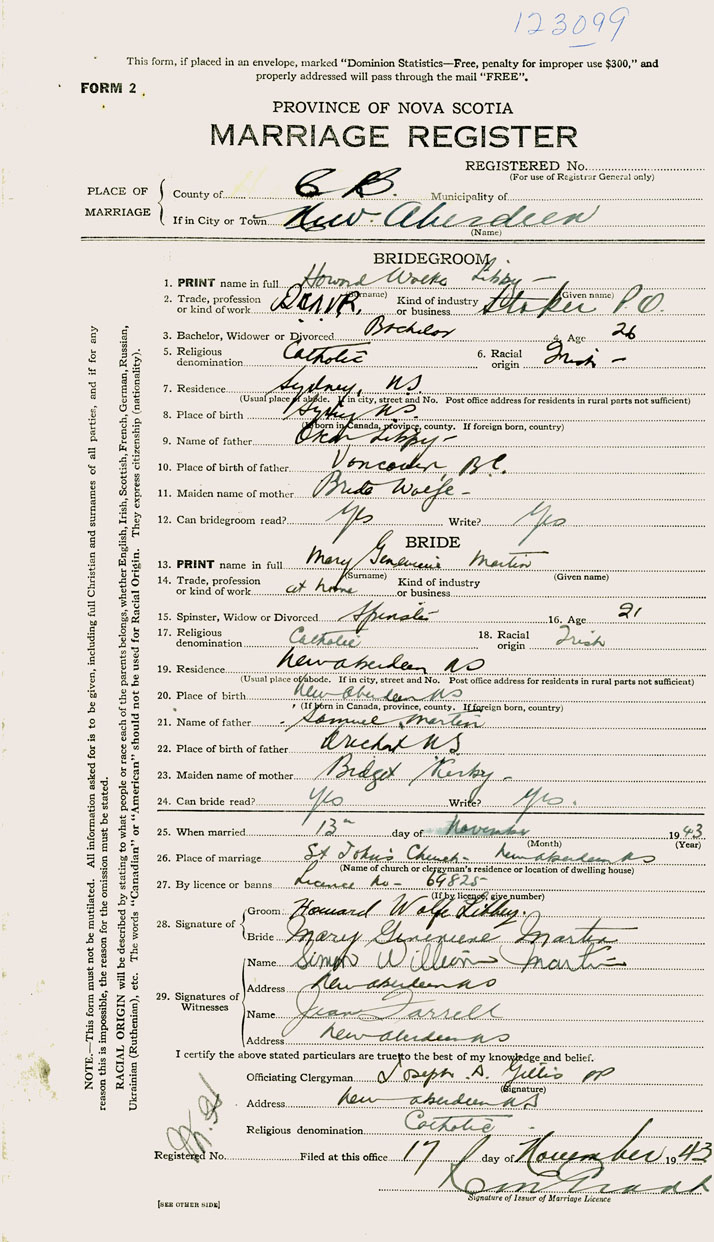 123099
This form, if placed in an envelope, marked "Dominion Statistics—Free, penalty for improper use $300," and
properly addressed will pass through the mail "FREE".
FORM 2.
PROVINCE OF NOVA SCOTIA
MARRIAGE REGISTER
REGISTERED No.
(For use of Registrar General only)
PLACE OF MARRIAGE
County of C B. Municipality of
If in City or Town New Aberdeen
(Name)
BRIDEGROOM
1. PRINT name in full Howard Wolfe Libby —
(Surname) (Given name)
2. Trade, profession or kind of work Kind of industry or business Stoker P O.
3. Bachelor, Widower or Divorced Bachelor 4. Age 26
5. Religious denomination Catholic 6. Racial origin Irish —
7. Residence Sydney, N S
(Usual place of abode. If in city, street and No. Post office address for residents in rural parts not sufficient)
8. Place of birth Sydney N S
(If born in Canada, province, county. If foreign born, country)
9. Name of father Oscar Libby —
10. Place of birth of father Vancouver, B.C.
11. Maiden name of mother Wolfe —
12. Can bridegroom read? Yes Write? Yes
BRIDE
13. PRINT name in full Mary Genevieve Martin
(Surname) (Given name)
14. Trade, profession or kind of work at home Kind of industry or business
15. Spinster, Widow or Divorced Spinster 16. Age 21
17. Religious denomination Catholic 18. Racial origin Irish
19. Residence New Aberdeen N S
(Usual place of abode. If in city, street and No. Post office address for residents in rural parts not sufficient)
20. Place of birth New Aberdeen N S
(If born in Canada, province, county. If foreign born, country)
21. Name of father Samuel Martin
22. Place of birth of father Arichat N S
23. Maiden name of mother Bridget Kerby —
24. Can bride read? Yes Write? Yes.
25. When married 13th day of November 1943
(Month) (Year)
26. Place of marriage St John's Church — New Aberdeen N S
(Name of church or clergyman's residence or location of dwelling house)
27. By licence or banns Licence No — 69825
(If by licence, give number)
28. Signature of
Groom Howard Wolfe Libby.
Bride Mary Genevieve Martin
29. Signatures of Witnesses
Name Simon William Martin
Address New Aberdeen N S
Name Jean Farrell
Address New Aberdeen N S
I certify the above stated particulars are true to the best of my knowledge and belief.
Officiating Clergyman Joseph A. Gillis P P
(Signature)
Address New Aberdeen N S
Religious denomination Catholic
Registered No. Filed at this office 17 day of November 1943
Signature of Issuer of Marriage Licence
[SEE OTHER SIDE]
NOTE.—This form must not be mutilated. All information asked for is to be given, including full Christian and surnames of all parties, and if for any
reason this is impossible, the reason for the omission must be stated.
RACIAL ORIGIN will be described by stating to what people or race each of the parents belongs, whether English, Irish, Scottish, French, German, Russian,
Ukrainian (Ruthenian), etc. The words "Canadian" or "American" should not be used for Racial Origin. They express citizenship (nationality).